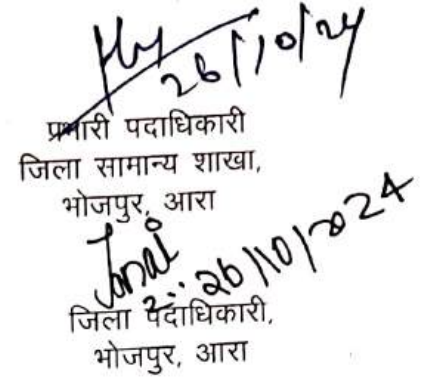 26/10/24
प्रभारी पदाधिकारी
जिला सामान्य शाखा,
भोजपुर, आरा
26/10/2024
जिला पदाधिकारी,
भोजपुर, आरा